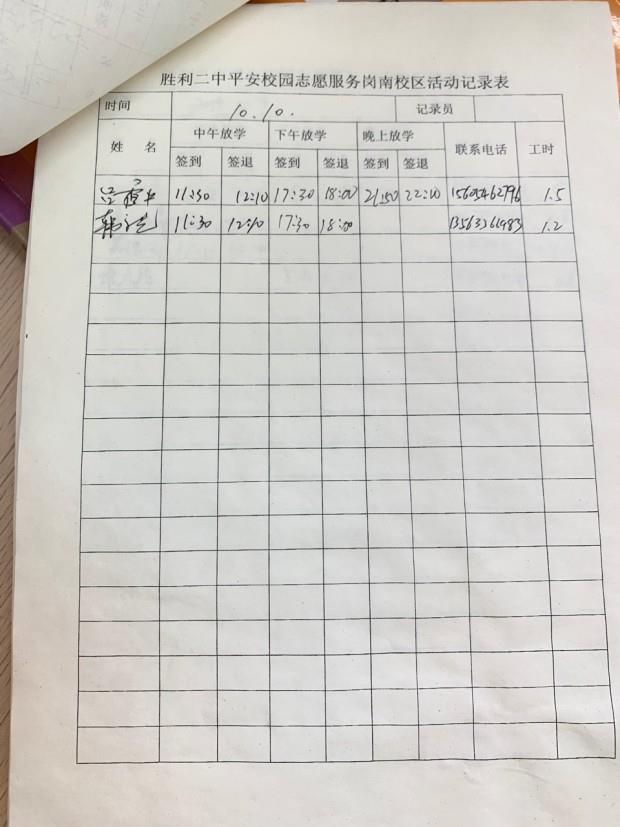 胜利二中平安校园志愿服务岗南校区活动记录表
时间 10.10. 记录员
姓 名 中午放学 下午放学 晚上放学 联系电话 工时
签到 签退 签到 签退 签到 签退
11:30 12:10 17:30 18:00 21:50 22:10 1.5
11:30 12:10 17:30 18:00 1.2